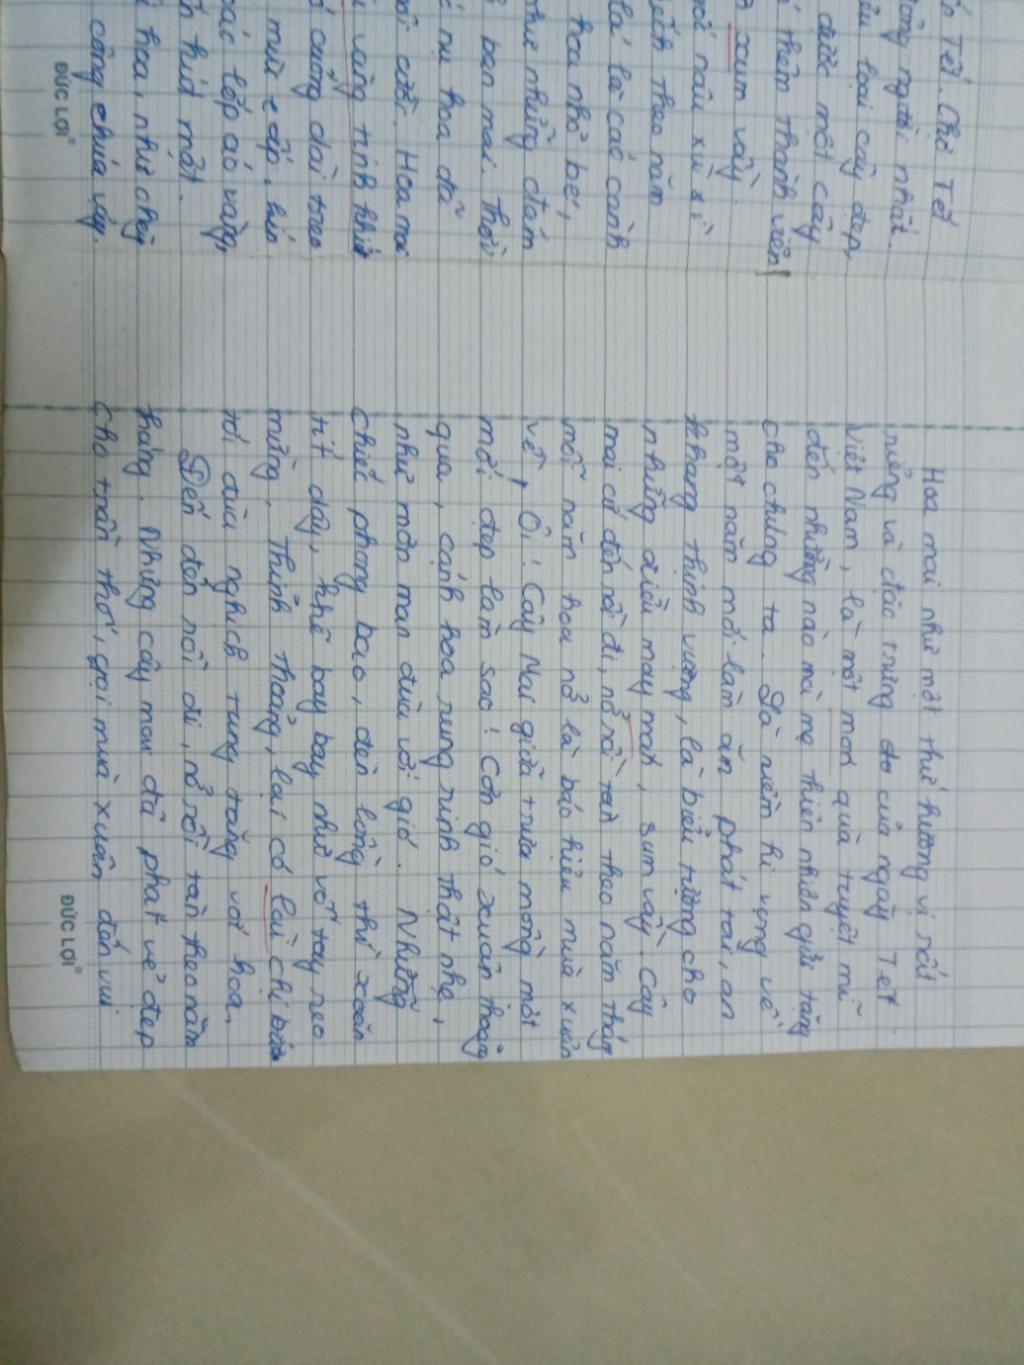 Tết. Chợ Tết
đông người nhất.
loại cây đẹp,
được một cây
thêm thành viên
xum vầy.
nâu xù xì
theo năm
lá là các cành
hoa nhỏ bé,
như những đám
ban mai. Thời
nụ hoa đã
rồi. Hoa mai
vàng tinh khiết
cuống dài treo
mừi e ấp, kín
các lớp áo vàng,
hút mật.
hoa, như chạy
công chúa vậy.
ĐỨC LỢI
Hoa mai như một thứ hương vị rất
riêng và đặc trưng do của ngày Tết
Việt Nam, là một món quà tuyệt mĩ
đến nhường nào mà mẹ thiên nhiên gửi tặng
cho chúng ta. Là niềm hi vọng về
một năm mới làm ăn phát tài, an
khang thịnh vượng, là biểu tượng cho
những điều may mắn, sum vầy. Cây
mai cứ đến rồi đi, nở rồi tàn theo năm tháng
mỗi năm hoa nở là báo hiệu mùa xuân
về, Ôi! Cây Mai giữa trưa mồng một
mới đẹp làm sao! Cơn gió xuân thoảng
qua, cánh hoa rung rinh thật nhẹ,
như mơn man đùa với gió. Những
chiếc phong bao, đèn lồng thì xoắn
tít dây, khẽ bay bay như vỗ tay reo
mừng. Thỉnh thoảng, lại có lũ chị bướm
tới đùa nghịch tung tăng với hoa.
Đến đến rồi đi, nở rồi tàn theo năm
tháng. Những cây mai đã phát vẻ đẹp
cho trần thế, gọi mùa xuân đến với
ĐỨC LỢI